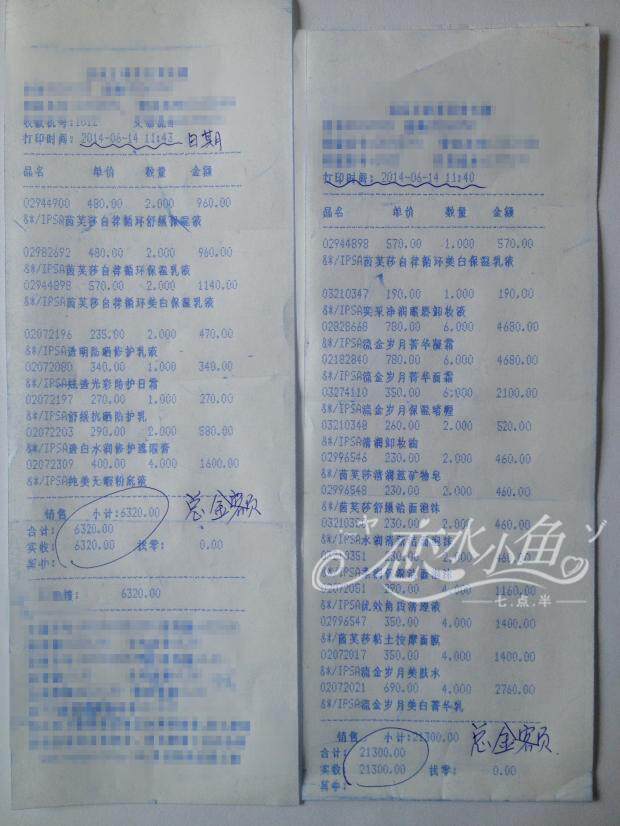 打印时间: 2014-06-14 11:43 日期
品名 单价 数量 金额
02944900 480.00 2.000 960.00
&*/IPSA茵芙莎自律循环舒缓保湿液
02982692 480.00 2.000 960.00
&*/IPSA茵芙莎自律循环保湿乳液
02944898 570.00 2.000 1140.00
&*/IPSA茵芙莎自律循环美白保湿乳液
02072196 235.00 2.000 470.00
&*/IPSA透明防晒修护乳液
02072080 340.00 1.000 340.00
&*/IPSA炫盈光彩防护日霜
02072197 270.00 1.000 270.00
&*/IPSA舒缓抗晒防护乳
02072203 290.00 2.000 580.00
&*/IPSA透白水润修护遮瑕膏
02072309 400.00 4.000 1600.00
&*/IPSA纯美无瑕粉底液
销售 小计:6320.00 总金额
合计: 6320.00
实收: 6320.00 找零: 0.00
其中:
6320.00
打印时间: 2014-06-14 11:40
品名 单价 数量 金额
02944898 570.00 1.000 570.00
&*/IPSA茵芙莎自律循环美白保湿乳液
03210347 190.00 1.000 190.00
&*/IPSA奕采净润眼唇卸妆液
02828668 780.00 6.000 4680.00
&*/IPSA流金岁月菁华凝霜
02182840 780.00 6.000 4680.00
&*/IPSA流金岁月菁华面霜
03274110 350.00 6.000 2100.00
&*/IPSA流金岁月保湿啫喱
03210348 260.00 2.000 520.00
&*/IPSA清润卸妆油
02996546 230.00 2.000 460.00
&*/茵芙莎清润蓝矿物皂
02996548 230.00 2.000 460.00
&*/茵芙莎舒缓洁面泡沫
230.00 2.000 460.00
03210351 230.00
02072051 290.00 4.000 1160.00
&*/IPSA优效角质清理液
02996547 350.00 4.000 1400.00
&*/茵芙莎粘土按摩面膜
02072017 350.00 4.000 1400.00
&*/IPSA流金岁月美肤水
02072021 690.00 4.000 2760.00
&*/IPSA流金岁月美白菁华乳
销售 小计:21300.00 总金额
合计: 21300.00
实收: 21300.00 找零: 0.00
其中:
@秋水小鱼
七点半